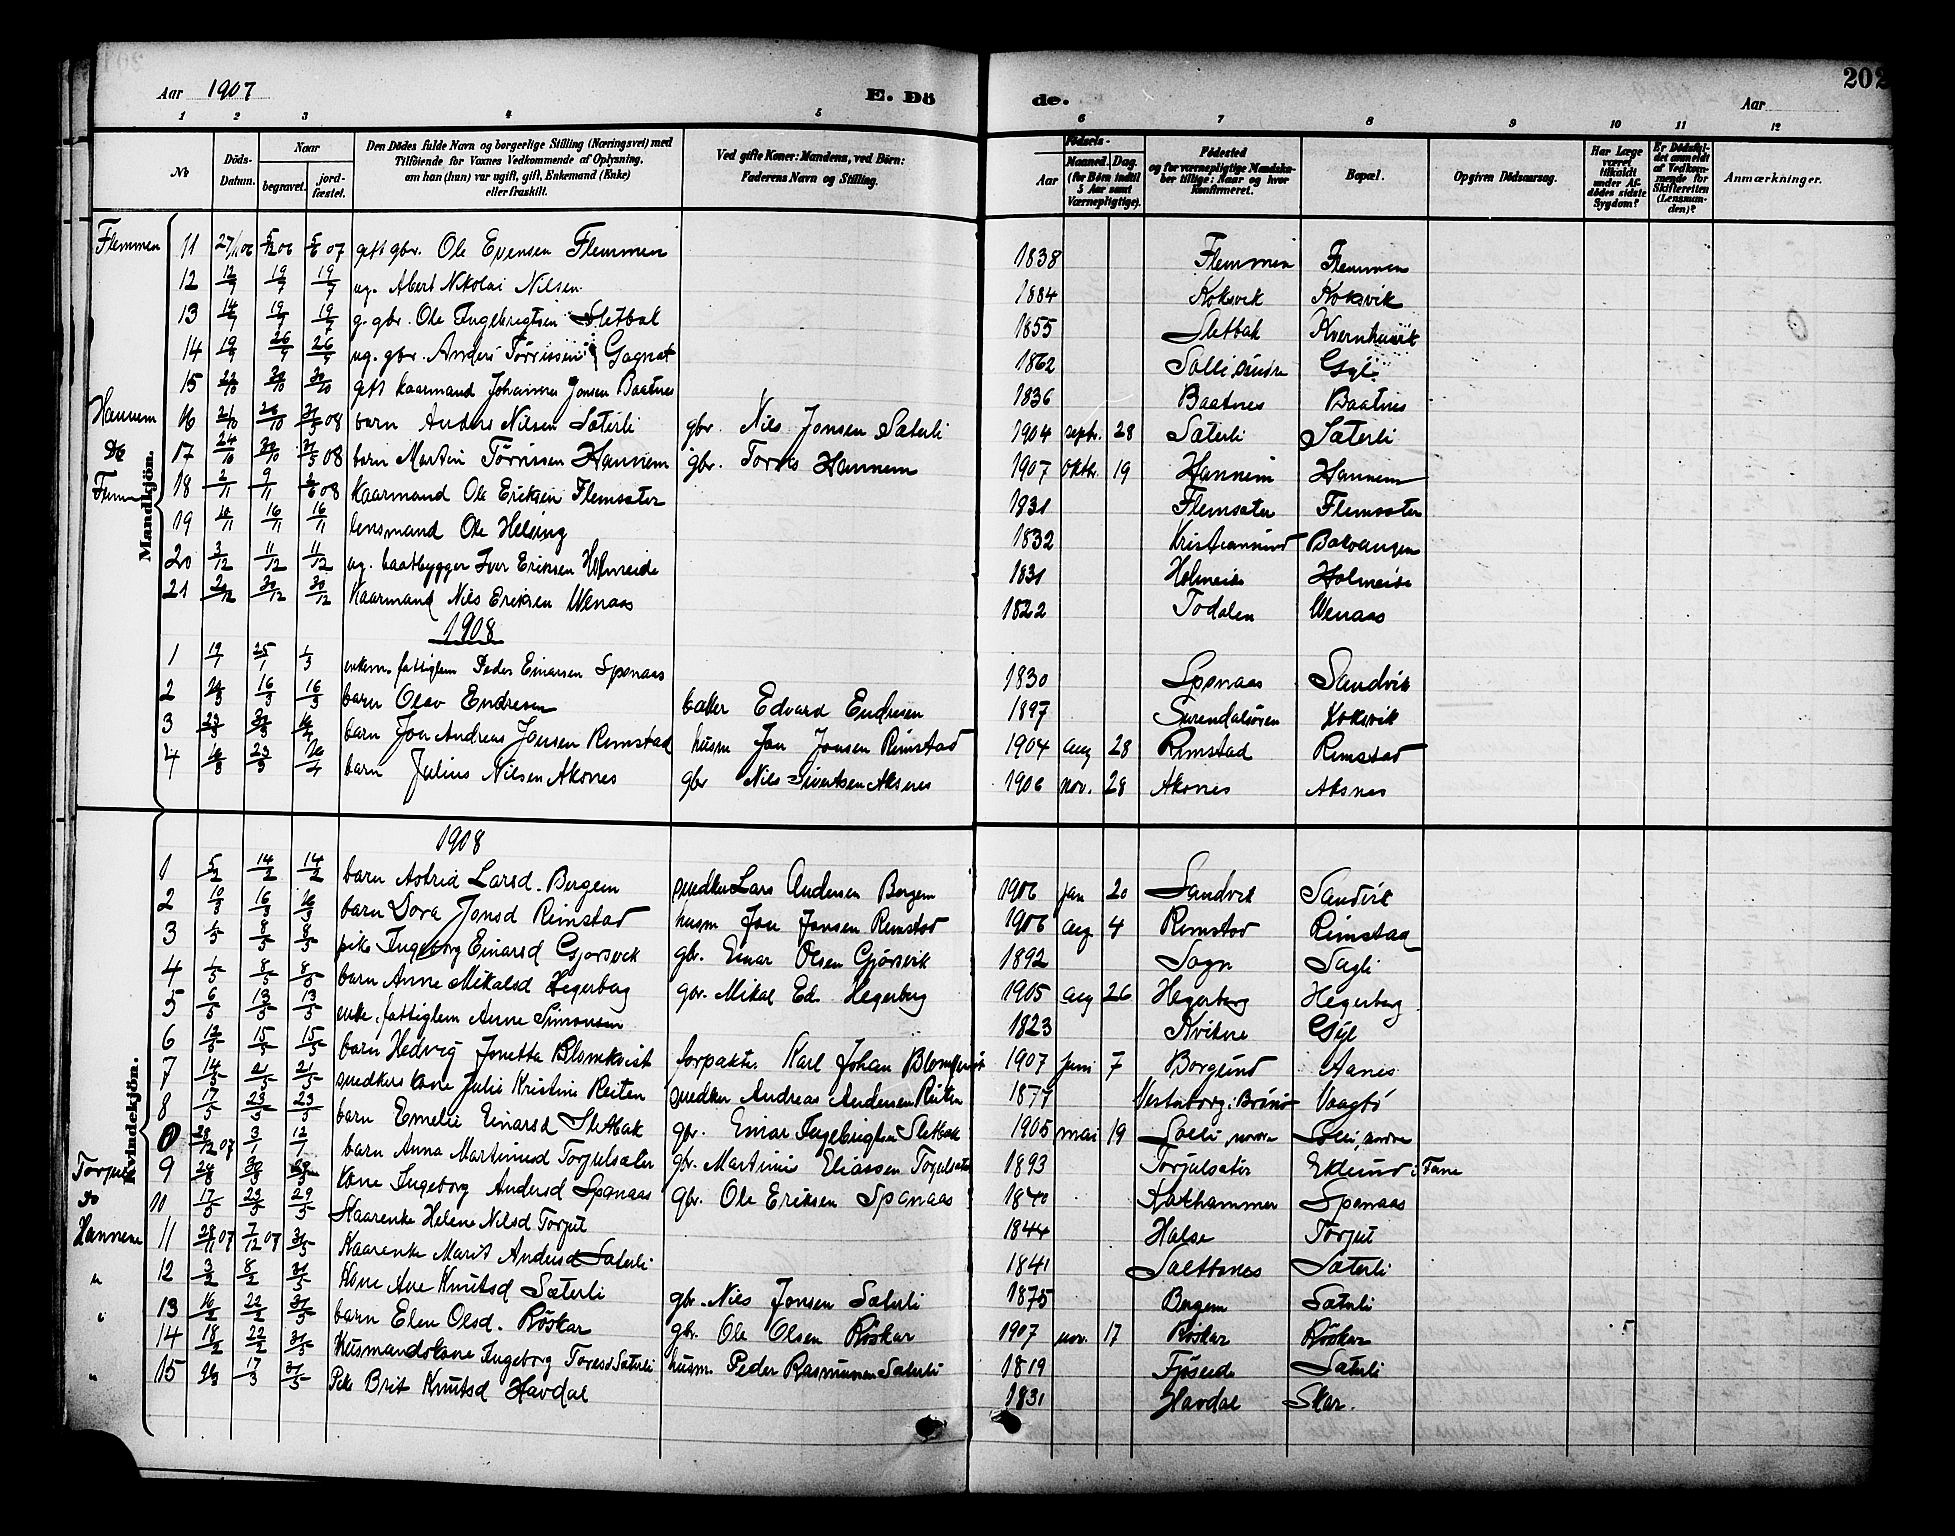 202
Aar 1907 E. Dö de. Aar
1 2 3 4 5 6 7 8 9 10 11 12
No Döds-Datum. Naar begravet. jord-fæstet. Den Dödes fulde Navn og borgerlige Stilling (Næringsvei) med Tilföiende for Voxnes Vedkommende af Oplysning, om han (hun) var ugift, gift, Enkemand (Enke) eller fraskilt. Ved gifte Koner: Mandens, ved Börn: Faderens Navn og Stilling. Födsels- Aar Maaned. Dag. (for Börn indtil 5 Aar samt Værnepligtige). Födested og for værnepligtige Mandskaber tillige: Naar og hvor konfirmeret. Bopæl. Opgiven Dödsaarsag. Har Læge været tilkaldt under Afdödes sidste Sygdom? Er Dödsfaldet anmeldt af Vedkommende for Skifteretten (Lensmanden)? Anmærkninger.
Mandkjön.
Flemmen 11 27/11 06 5/12 06 5/6 07 gift gbr. Ole Evensen Flemmen 1838 Flemmen Flemmen
12 12/7 19/7 19/7 ug. Abert Nikolai Nilsen 1884 Koksvik Koksvik
13 14/7 19/7 19/7 g. gbr. Ole Ingebrigtsen Sletbak 1855 Sletbak Kvernhusvik
14 19/9 26/9 26/9 ug. gbr. Anders Törrissen Gagnat 1862 Solli, søndre Gyl
15 22/10 30/10 30/10 gift kaarmand Johannes Jonsen Baatnes 1836 Baatnes Baatnes
Hannem 16 21/10 26/10 31/5 08 barn Anders Nilsen Sæterli gbr. Nils Jonsen Sæterli 1904 septr. 28 Sæterli Sæterli
Do 17 24/10 30/10 31/5 08 barn Martin Törrissen Hannem gbr. Torris Hannem 1907 oktbr. 19 Hannem Hannem
18 2/11 9/11 2/6 08 kaarmand Ole Eriksen Flemsæter 1831 Flemsæter Flemsæter
19 10/11 16/11 16/11 lensmand Ole Helsing 1832 Kristiansund Bolvangen
20 3/12 11/12 11/12 ug. baatbygger Iver Eriksen Holmeide 1831 Holmeide Holmeide
21 2/12 30/12 30/12 Kaarmand Nils Eriksen Wenaas 1822 Todalen Wenaas
1908
1 19/1 25/1 1/3 enkem. fattiglem Peder Einarsen Sponaas 1830 Sponaas Sandvik
2 16/3 16/3 barn Olav Endresen Edvard Endresen 1897 Surendalsøren Koksvik
3 barn Jon Andreas Jonsen Rimstad husm Jon Jonsen Rimstad 1904 aug 28 Rimstad Rimstad
4 barn Julius Nilsen Aksnes gbr Nils Sivertsen Aksnes 1906 nov. 28 Aksnes Aksnes
Kvindekjön.
1908
1 5/2 14/2 14/2 barn Astrid Larsd. Bergem snedker Lars Andersen Bergem 1906 jan 20 Sandvik Sandvik
2 10/3 16/3 16/3 barn Dora Jonsd Rimstad husm Jon Jonsen Rimstad 1906 aug 4 Rimstad Rimstad
3 8/5 8/5 pike Ingeborg Einarsd Gjørsvik gbr. Einar Olsen Gjørsvik 1892 Sogn Sagli
4 1/5 8/5 8/5 barn Anne Mikalsd Hegerberg gbr. Mikal Ed. Hegerberg 1905 aug 26 Hegerberg Hegerberg
5 6/5 13/5 13/5 enke, fattiglem Anne Simonsen 1823 Kvikne Gyl
6 12/5 15/5 15/5 barn Hedvig Jonetta Blomkvist forpakter Karl Johan Blomqvist 1907 juni 7 Borgund Aanes
7 14/5 21/5 21/5 snedkers kone Julie Kristine Reiten snedker Andreas Andersen Reiten 1877 Vesterborg i Brønø Vaagbø
8 17/5 23/5 23/5 barn Emelie Einarsd Sletbak gbr. Einar Ingebrigtsen Sletbak 1905 mai 19 Solli, nordre Solli, nordre
28/12 07 3/1 12/1 barn Anna Martinusd Torjulsæter gbr. Martinus Eliassen Torjulsæter 1893 Torjulsæter Eklund i Fane
Torjul 9 kone Ingeborg Andersd Sponaas gbr. Ole Eriksen Sponaas 1840 Kathammer Sponaas
Do 10 17/5 23/5 29/5 Kaarenke Helene Nilsd Torjul 1844 Halse Torjul
Hannem 11 28/11 07 7/12 07 31/5 Kaarenke Marit Andersd Sæterli 1841 Saltbones Sæterli
" 12 3/2 8/2 31/5 Kone Ane Knutsd Sæterli gbr. Nils Jonsen Sæterli 1875 Bergem Sæterli
" 13 16/2 22/2 31/5 barn Elen Olsd. Röskar gbr. Ole Olsen Röskar 1907 nov. 17 Röskar Röskar
14 18/2 22/2 31/5 Husmandskone Ingeborg Toresd Sæterli husm. Peder Rasmussen Sæterli 1819 Fjøseide Sæterli
" 15 17/3 31/5 Pike Brit Knutsd Havdal 1831 Havdal Skar.